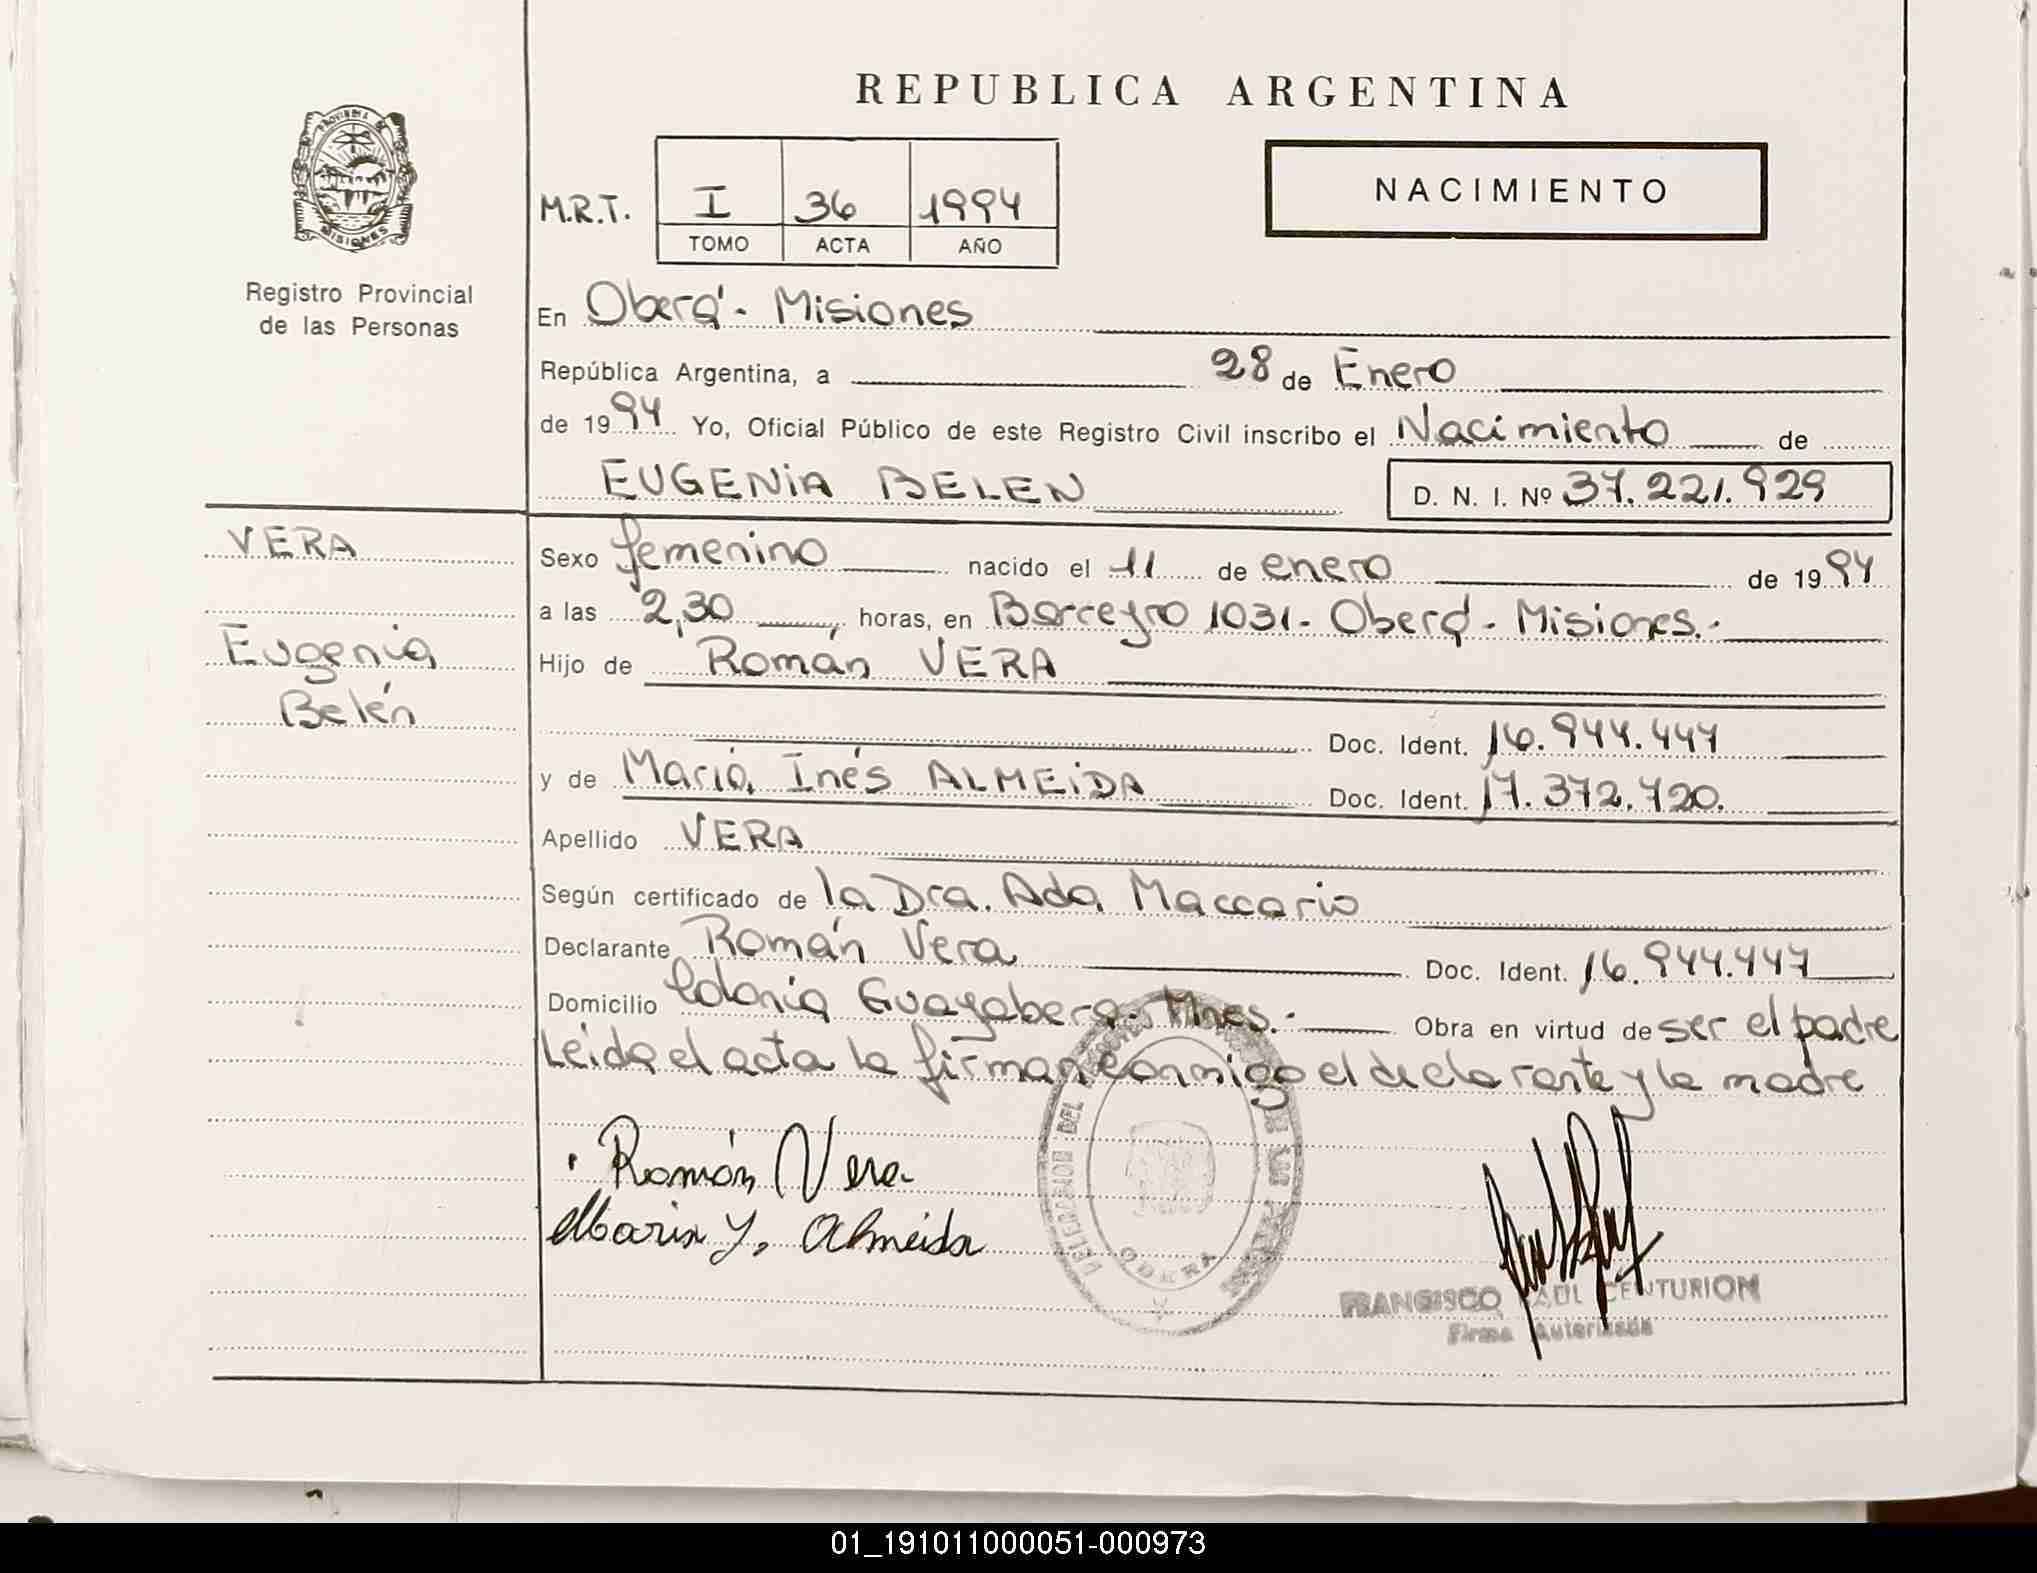 REPUBLICA ARGENTINA
PROVINCIA DE
MISIONES
Registro Provincial
de las Personas
M.R.T. I 36 1994
TOMO ACTA AÑO
NACIMIENTO
En Oberá - Misiones
República Argentina, a 28 de Enero
de 1994 Yo, Oficial Público de este Registro Civil inscribo el Nacimiento de
EUGENIA BELEN D. N. I. Nº 37.221.929
VERA
Eugenia
Belén
Sexo femenino nacido el 11 de enero de 1994
a las 2,30 horas, en Barreyro 1031 - Oberá - Misiones.-
Hijo de Román VERA
Doc. Ident. 16.944.447
y de María Inés ALMEIDA Doc. Ident. 17.372.720.
Apellido VERA
Según certificado de la Dra. Ada Maccario
Declarante Román Vera Doc. Ident. 16.944.447
Domicilio Colonia Guayabera - Mnes.- Obra en virtud de ser el padre
Leida el acta la firman conmigo el declarante y la madre
Román Vera
Maria Y. Almeida
DELEGACION DEL
OBERA
FRANCISCO RAUL CENTURION
Firma Autorizada
01_191011000051-000973